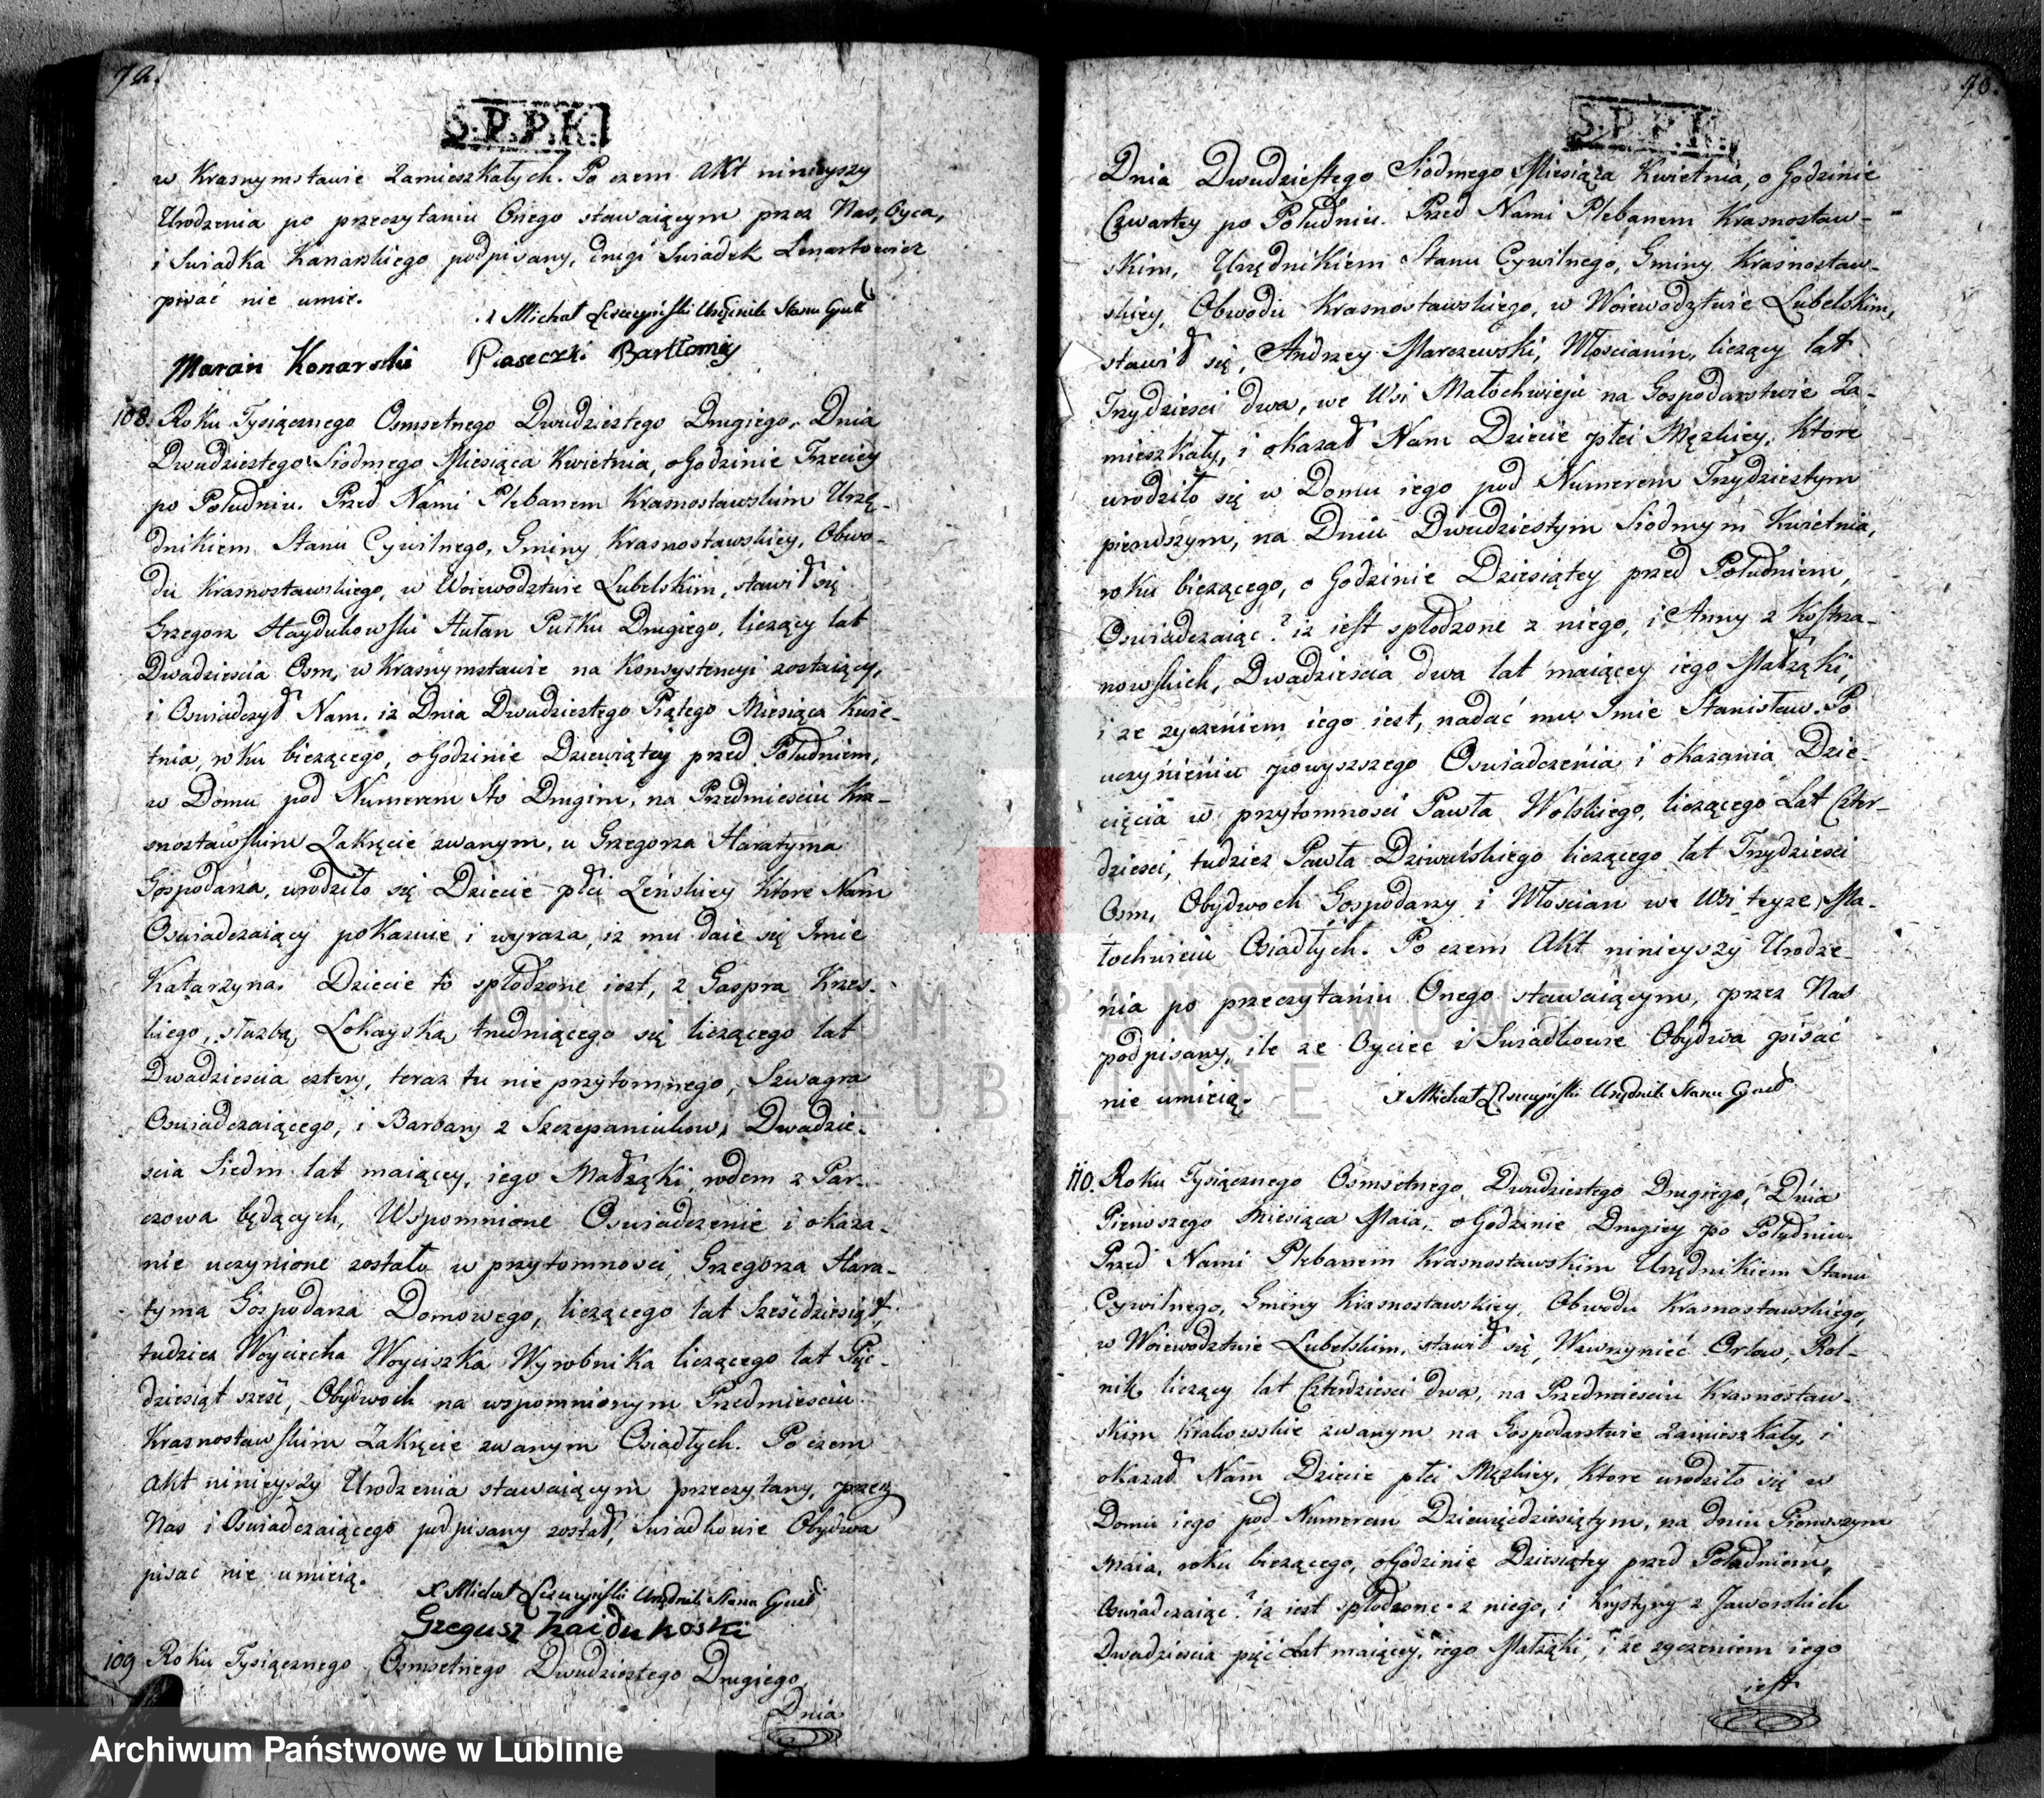 S.P.P.K.
w Krasnymstawie zamieszkałych. Po czem Akt ninieyszy
Urodzenia po przeczytaniu Onego stawaiącym przez Nas, Oyca,
i Swiadka Kanarskiego podpisany, drugi Swiadek Lenartowicz
pisać nie umie.
X Michał Urzędnik Stanu Cywil
Marcin Konarski Piaseczki Bartłomiy
108. Roku Tysiącznego Osmsetnego Dwudziestego Drugiego, Dnia
Dwudziestego Siodmego Miesiąca Kwietnia, o Godzinie Trzeciey
po Południu. Przed Nami Plebanem Krasnostawskim Urzę-
dnikiem Stanu Cywilnego, Gminy Krasnostawskiey, Obwo-
du Krasnostawskiego, w Woiewodztwie Lubelskim, stawił się
Grzegorz Haydukowski Hułan Pułku Drugiego, liczący lat
Dwadziescia Osm, w Krasnymstawie na Konsystencyi zostaiący,
i Oswiadczył Nam. iz Dnia Dwudziestego Piątego Miesiąca Kwie-
tnia, roku bieżącego, o Godzinie Dziewiątey przed Południem,
w Domu pod Numerem Sto Drugim, na Przedmiesciu Kra-
snostawskim Zakręcie zwanym, u Grzegorza Haratyma
Gospodarza, urodziło się Dziecie płci Zeńskiey ktore Nam
Oswiadczaiący pokazuie i wyraza, iz mu daie się Imie
Katarzyna. Dziecie to spłodzone iest, z Gaspra Krzes-
kiego, słuzbą Lokayską trudniącego się liczącego lat
Dwadziescia cztery, teraz tu nie przytomnego, Szwagra
Oswiadczaiącego, i Barbary z Szczepaniukow, Dwadzie-
scia Siedm lat maiącey, iego Małząki, rodem z Par-
czowa będących, Wspomnione Oswiadczenie i okaza-
nie uczynione zostało w przytomnosci Grzegorza Hara-
tyma Gospodarza Domowego, liczącego lat Szesćdziesiąt,
tudziez Woyciecha Woyciszka Wyrobnika liczącego lat Pięć-
dziesiąt sześć, Obydwoch na wspomnionym Przedmiesciu
Krasnostawskim Zakręcie zwanym Osiadłych. Po czem
Akt ninieyszy Urodzenia stawaiącym przeczytany, przez
Nas i Oswiadczaiącego podpisany został, Swiadkowie Obydwa
pisac nie umieią.
X Michał Urzędnik Stanu Cywil
Gzegusz Haidukoski
109 Roku Tysiącznego Osmsetnego Dwudziestego Drugiego,
Dnia
S.P.P.K.
Dnia Dwudziestego Siodmego Miesiąca Kwietnia, o Godzinie
Czwartey po Południu. Przed Nami Plebanem Krasnostaw-
skim, Urzędnikiem Stanu Cywilnego, Gminy Krasnostaw-
skiey, Obwodu Krasnostawskiego, w Woiewodztwie Lubelskim,
stawił się, Andrzey Marczewski, Włoscianin, liczący lat
Trzydziesci dwa, we Wsi Małochwieju na Gospodarstwie Za-
mieszkały, i okazał Nam Dziecie płci Męzkiey, ktore
urodziło się w Domu iego pod Numerem Trzydziestym
pierwszym, na Dniu Dwudziestym Siodmym Kwietnia,
roku bieżącego, o Godzinie Dziesiątey przed Południem,
Oswiadczaiąc? iz iest spłodzone z niego, i Anny z Kostrza-
nowskich, Dwadziescia dwa lat maiącey iego Małząki,
i ze zyczeniem iego iest, nadać mu Imie Stanisław. Po
uczynieniu powyszszego Oswiadczenia i okazania Dzie-
cięcia w przytomnosci Pawła Wolskiego, liczącego Lat Czter-
dziesci, tudziez Pawła Dziwulskiego liczącego lat Trzydziesci
Osm, Obydwoch Gospodarzy i Włoscian we Wsi teyze Ma-
łochwieiu Osiadłych. Po czem Akt ninieyszy Urodze-
nia po przeczytaniu Onego stawaiącym, przez Nas
podpisany, ile ze Oyciec i Swiadkowie Obydwa pisać
nie umieią.
X Michał Urzędnik Stanu Cywil
110. Roku Tysiącznego Osmsetnego Dwudziestego Drugiego, Dnia
Pierwszego Miesiąca Maia, o Godzinie Drugiey po Południu.
Przed Nami Plebanem Krasnostawskim Urzędnikiem Stanu
Cywilnego, Gminy Krasnostawskiey, Obwodu Krasnostawskiego,
w Woiewodztwie Lubelskim, stawił się, Wawrzyniec Orław, Rol-
nik liczący lat Czterdziesci dwa, na Przedmiesciu Krasnostaw-
skim Krakowskie zwanym na Gospodarstwie zamieszkały, i
okazał Nam Dziecie płci Męzkiey, ktore urodziło się w
Domu iego pod Numerem Dziewięćdziesiątym, na dniu Pierwszym
Maia, roku bieżącego, o Godzinie Dziesiątey przed Południem,
Oswiadczaiąc? iz iest spłodzone z niego, i Krystyny z Jaworskich
Dwadziescia pięć Lat maiącey, iego Małząki, i ze zyczeniem iego
iest
ARCHIWUM PAŃSTWOWE
W LUBLINIE
Archiwum Państwowe w Lublinie